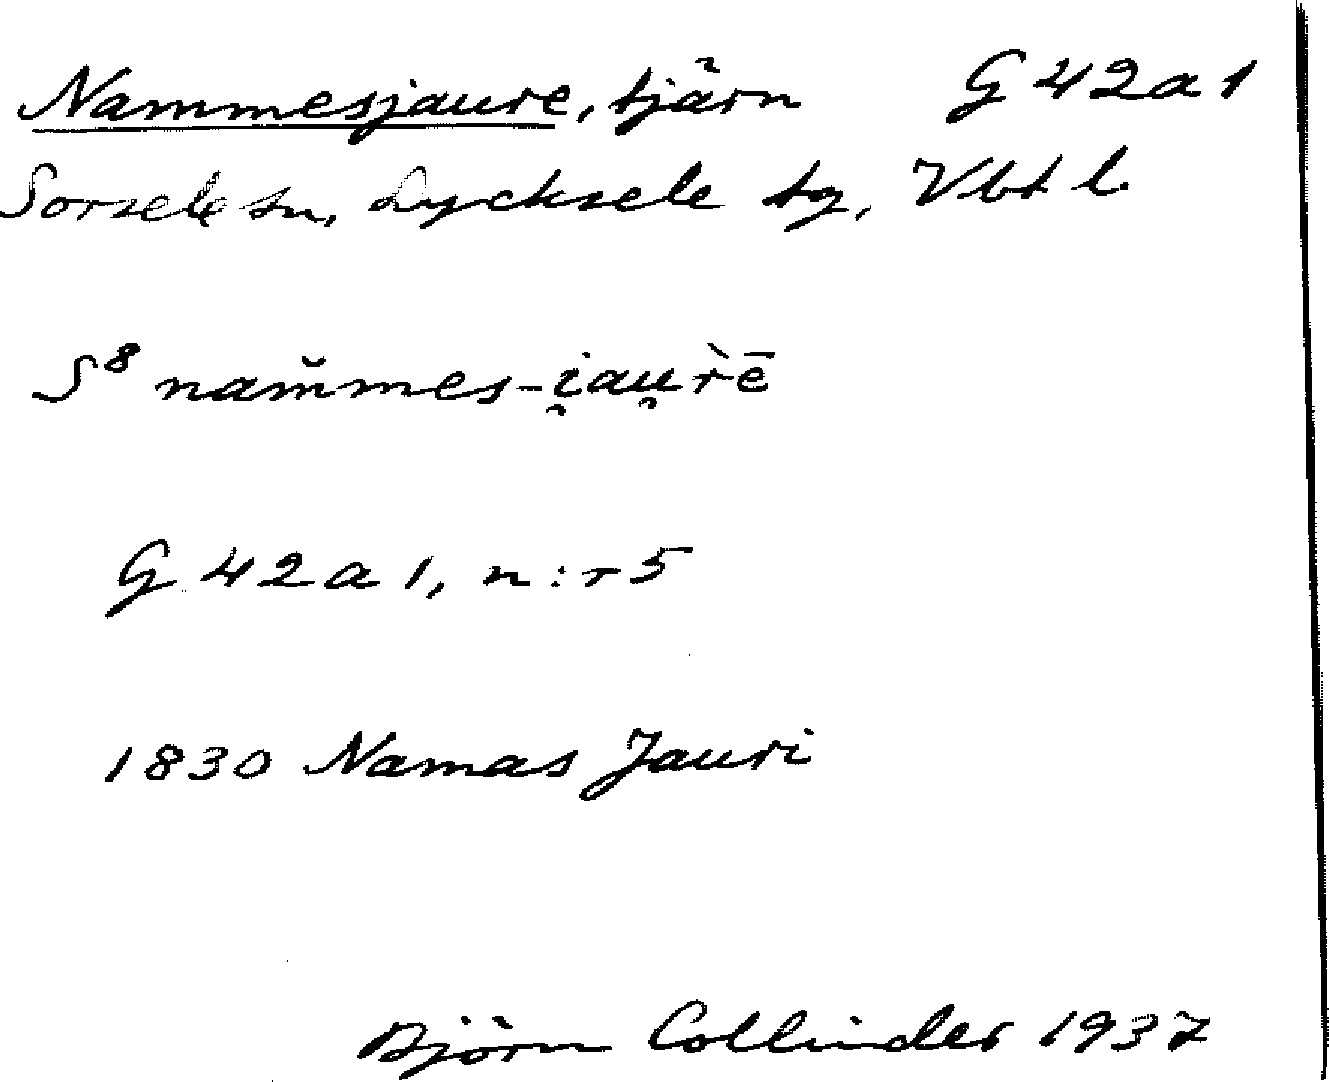 Nammesjaure, tjärn G 42a1
Sorsele sn, Lycksele tg, Vbt l.
S⁸ nam̆mes-i̯au̯r̀ē
G 42a1, n:r 5
1830 Namas Jauri
Björn Collinder 1937